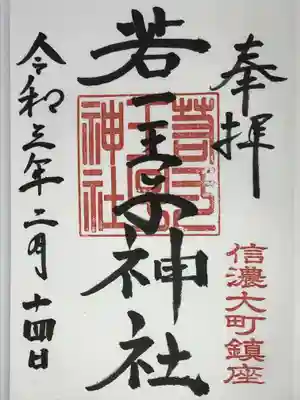 奉拝
信濃大町鎮座
若一王子神社
若一王子神社
令和三年二月十四日